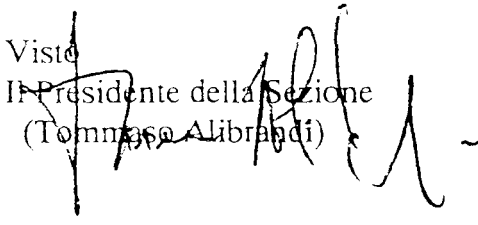 Visto
Il Presidente della Sezione
(Tommaso Alibrandi)